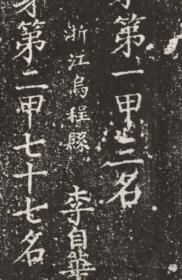 第一甲三名
浙江烏程縣 李自華
第二甲七十七名